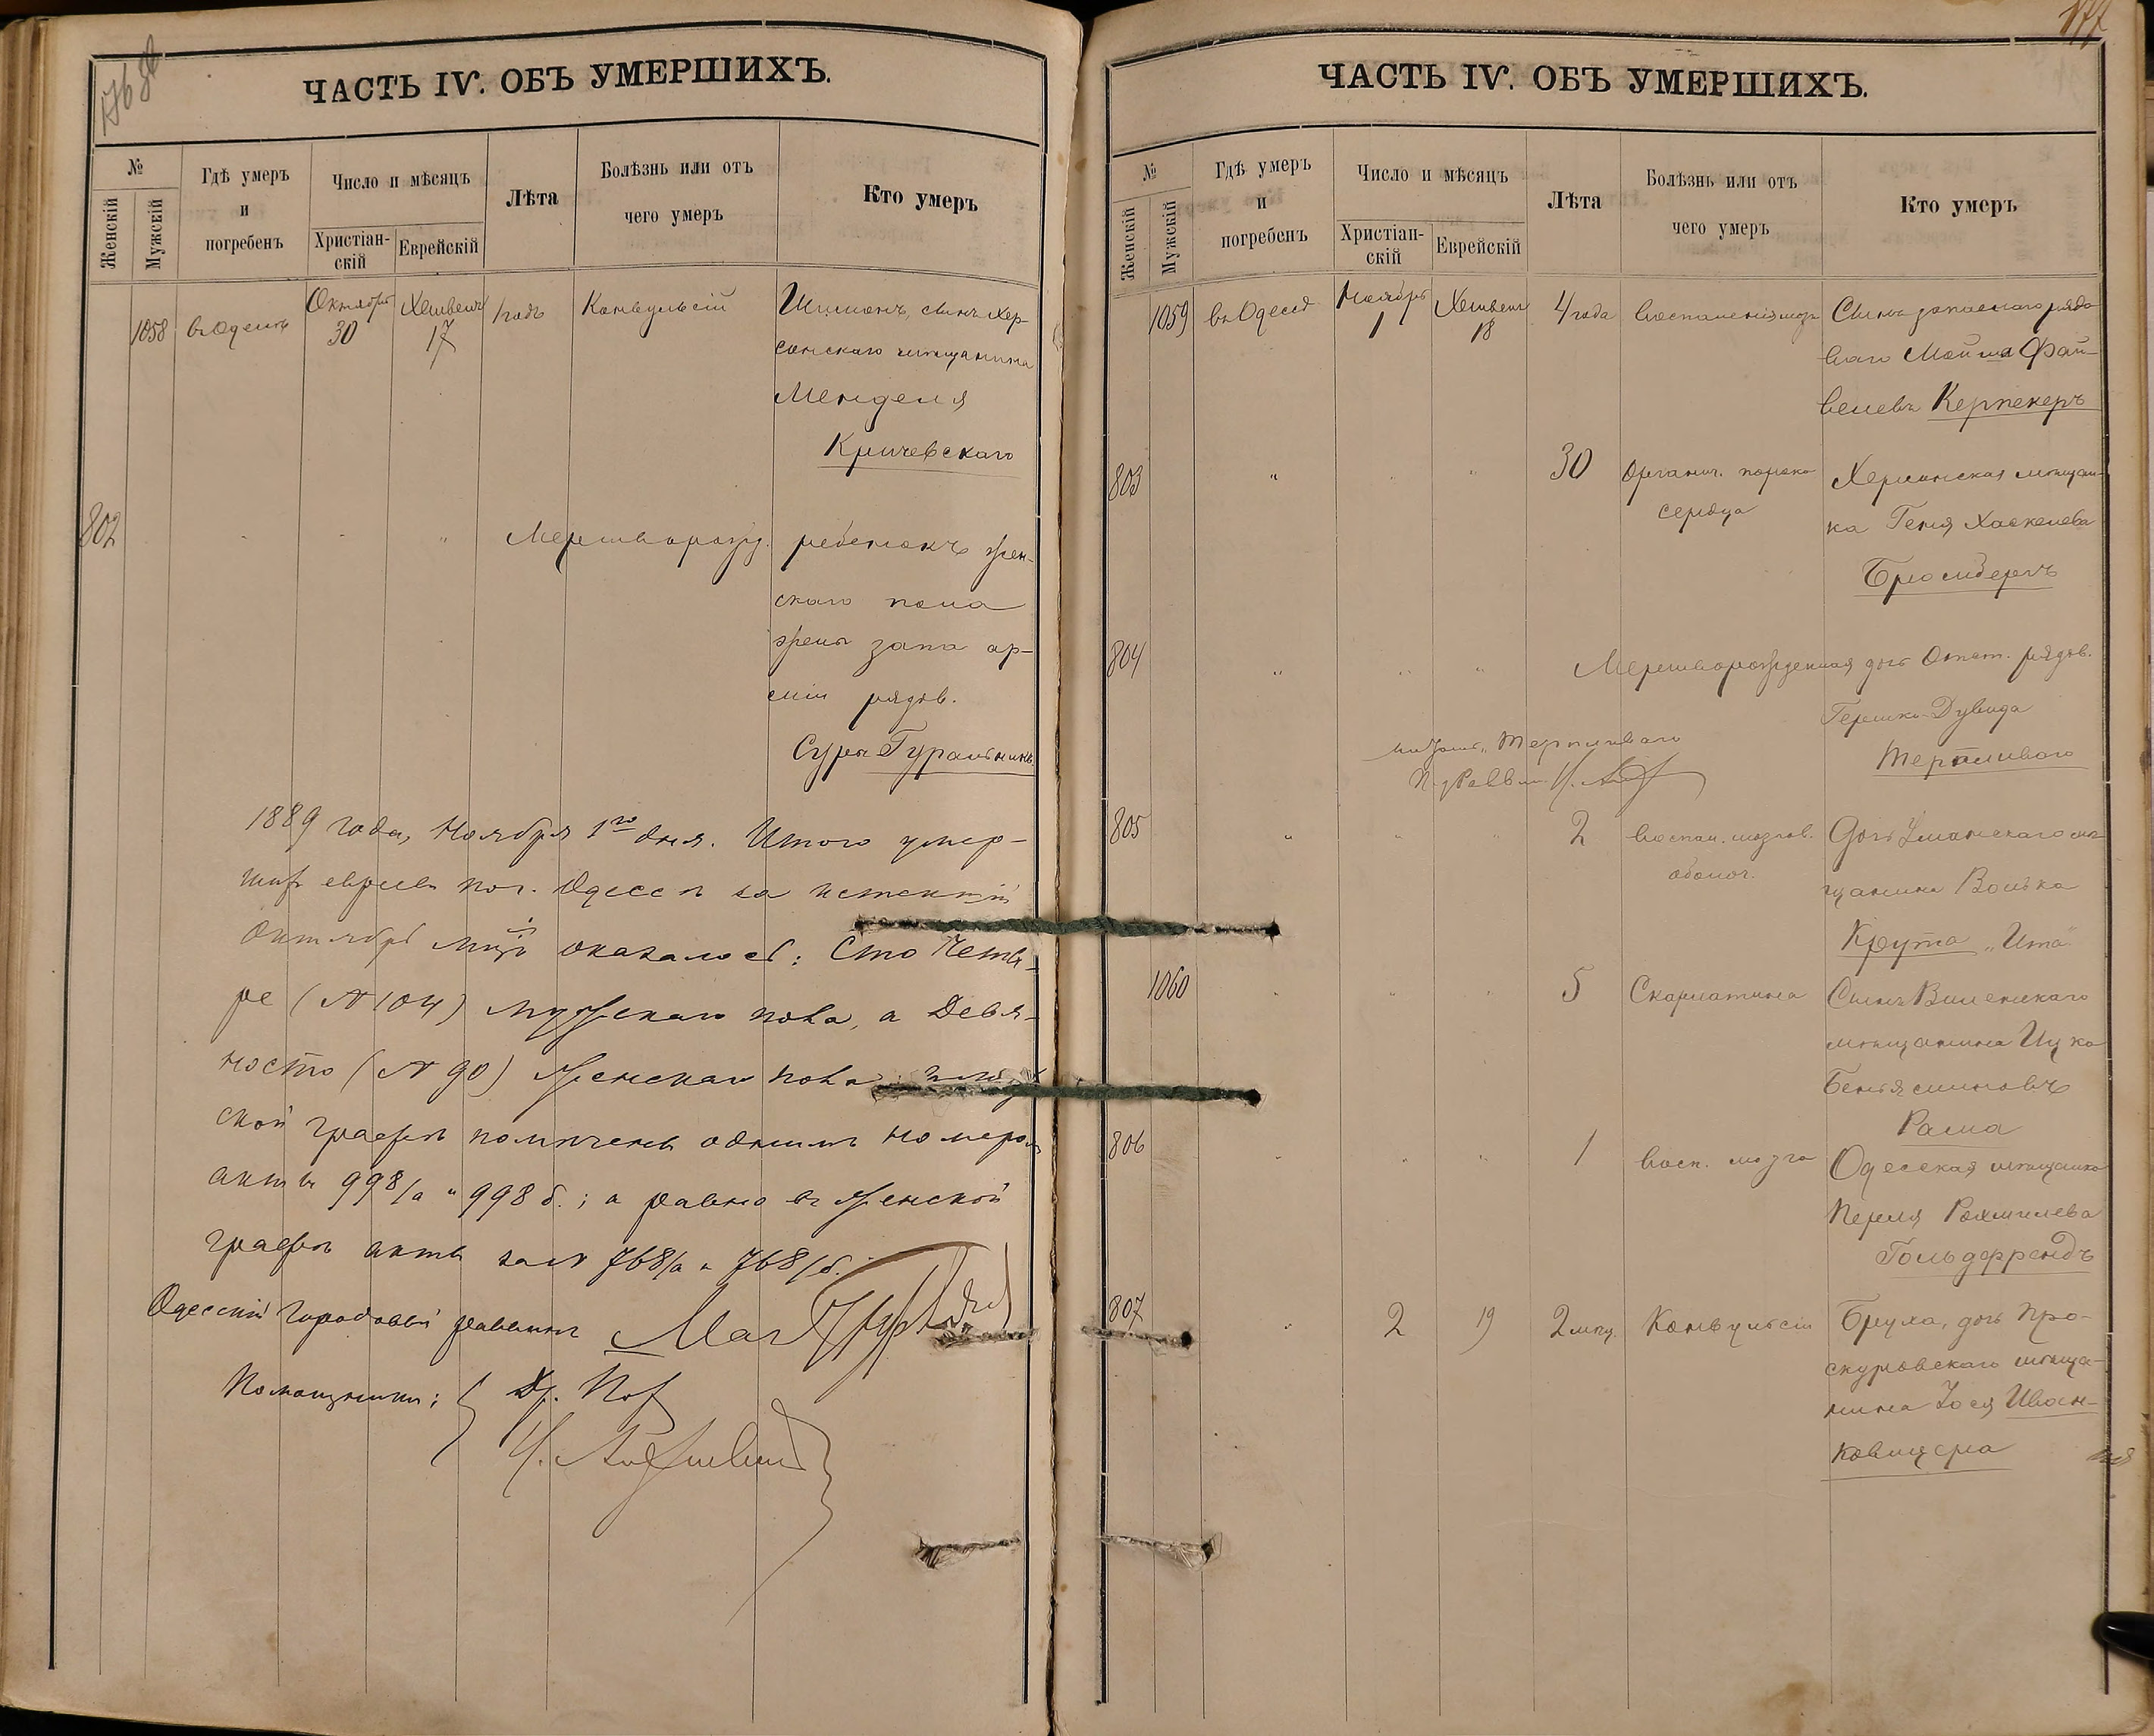 176 об
ЧАСТЬ IV. ОБЪ УМЕРШИХЪ.
№
Женскій
Мужскій
Гдѣ умеръ
и
погребенъ
Число и мѣсяцъ
Христіан-
скій
Еврейскій
Лѣта
Болѣзнь или отъ
чего умеръ
Кто умеръ
1058 въ Одессѣ Октября 30 Хешвенъ 17 1 годъ Конвульсіи Шимонъ, сынъ Хер-
сонскаго мѣщанина
Менделя
Кричевскаго
802 Мертворожд. ребенокъ жен-
скаго пола
жены запа ар-
рядов.
Суры Гуральникъ
1889 года, Ноября 1го дня. Итого умер-
шихъ евреевъ по г. Одессѣ за истекшій
Октябрь мцъ оказалось: Сто Четы-
ре (№ 104) мужскаго пола, а Девя-
носто (№ 90) женскаго пола
ской графѣ помѣчены однимъ номером
акты 998/а и 998 б.; а равно въ женской
графѣ акты за № 768/а и 768/б.
Одесскій Городовой раввинъ
Помощники:
177
ЧАСТЬ IV. ОБЪ УМЕРШИХЪ.
№
Женскій
Мужскій
Гдѣ умеръ
и
погребенъ
Число и мѣсяцъ
Христіан-
скій
Еврейскій
Лѣта
Болѣзнь или отъ
чего умеръ
Кто умеръ
1059 въ Одессѣ Ноября 1 Хешвенъ 18 4 года Воспаленія мозг Сынъ запаснаго рядо
ваго Мойша Фай-
велевъ Керпекеръ
803 " " " 30 Органич. порокъ Херсонская мѣщан-
сердца ка Геня Хаскелева
804 " " " Мертворожденная дочь Отст. рядов.
Гершко-Дувида
Терпеливаго
Терпеливаго
805 " " " 2 Воспал. мозгов. Дочь Уманскаго мѣ
оболоч. щанина Волька
Крута „Ита"
1060 " " " 5 Скарлатина Сынъ Виленскаго
мѣщанина Ицко
Беньяминовъ
806 " " " 1 Восп. мозга Одесская мѣщанка
Перля Рахмилева
Гольдфрендъ
807 " 2 19 2 мѣс. Конвульсіи Бруха, дочь Про-
скуровскаго мѣща-
нина Іося Ивон-
ковицера